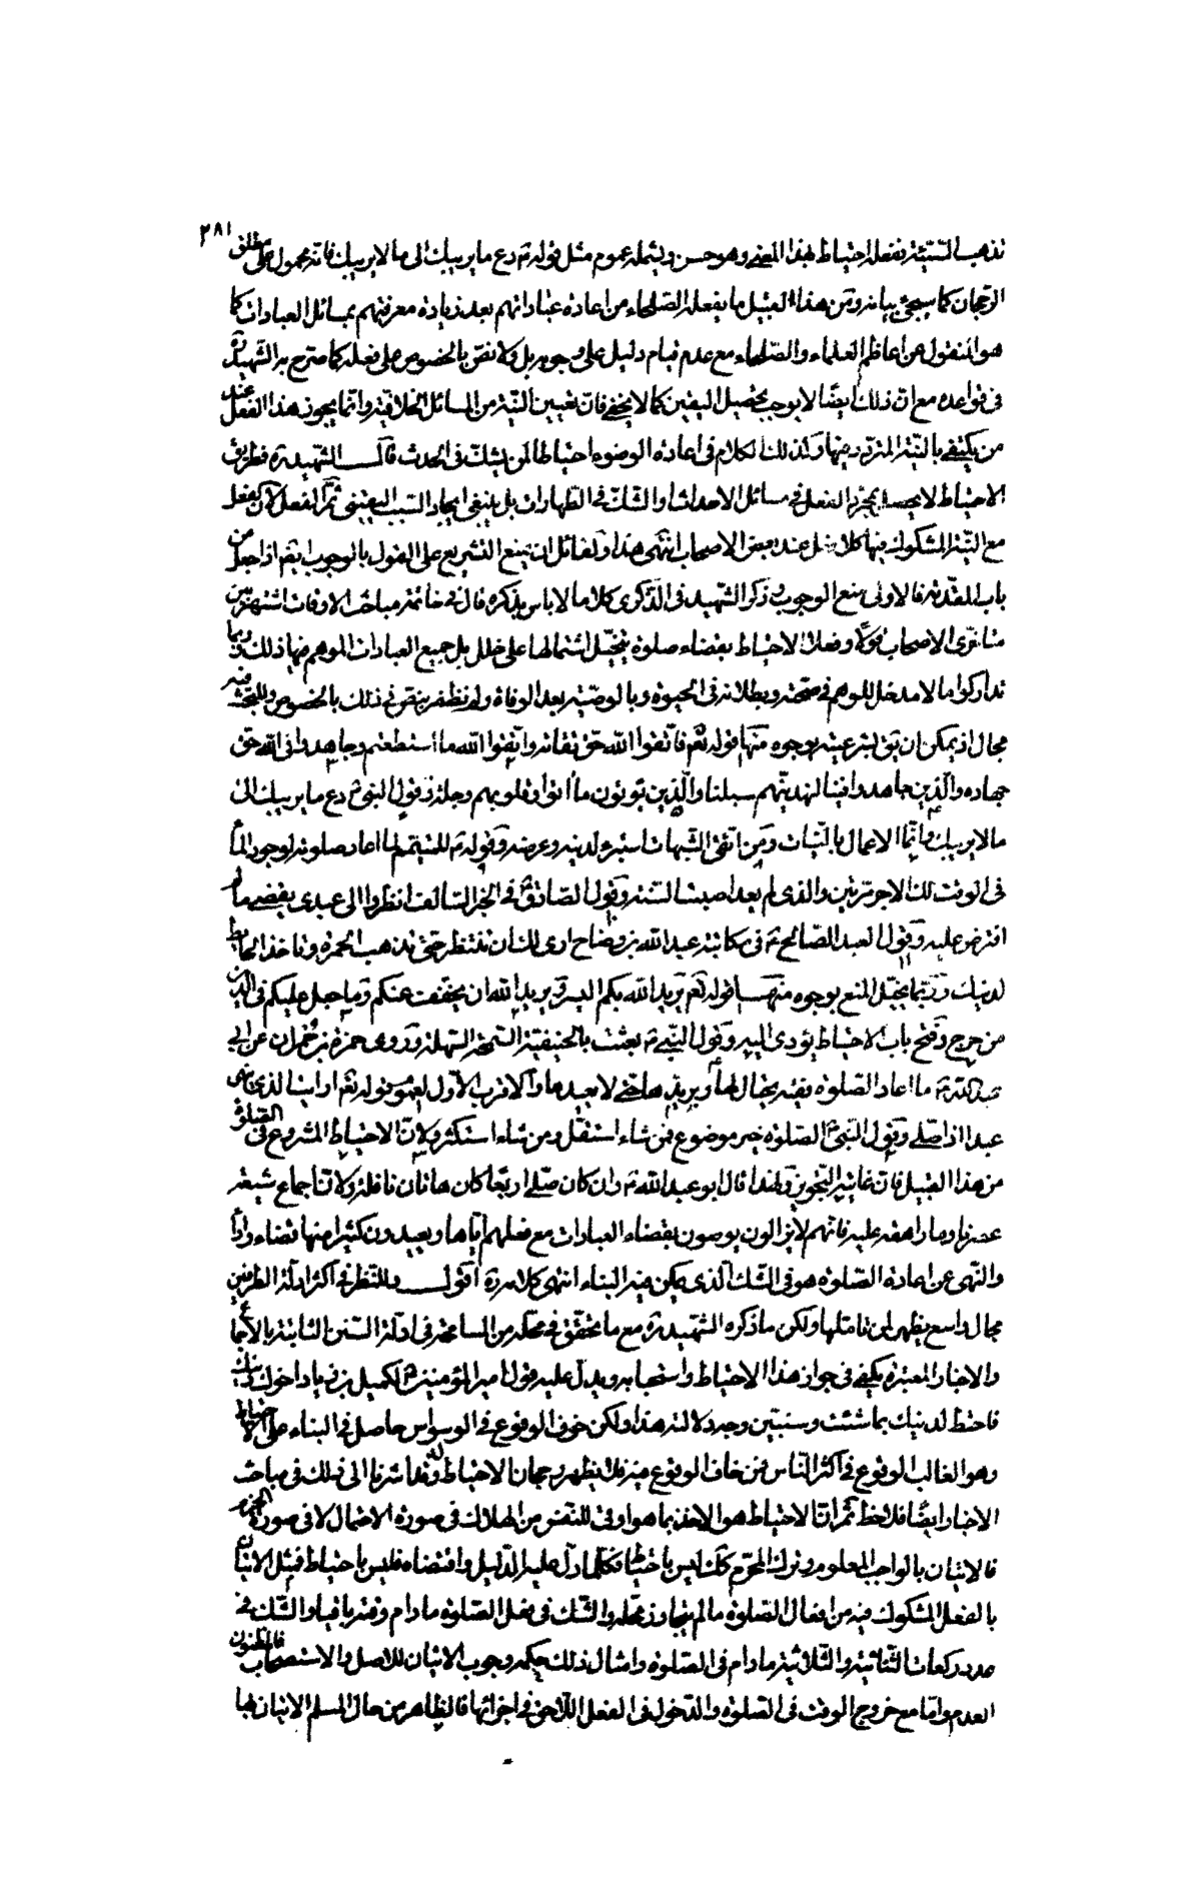 ٢٨١
تذهب السّيئة ففعله احتياط بهذا المعنى وهو حسن ويشمله عموم مثل قوله ع دع ما يريبك الى ما لا يريبك فانّه محمول على مطلق
الرجحان كما سيجئ بيانه ومن هذا القبيل ما يفعله الصّلحاء من اعادة عباداتهم بعد زيادة معرفتهم بمسائل العبادات كا
هو المنقول عن اعاظم العلماء والصّلحاء مع عدم قيام دليل على وجوبه بل ولا نصّ بالخصوص على فعله كما صرّح به الشّهيد ره
فى قواعده مع انّ ذلك ايضًا لا يوجب تحصيل اليقين كما لا يخفى فان تعيين النّية من المسائل الخلافية وانّما يجوز هذا الفعل عند
من يكتفى بالنّية المتردد فيها وكذلك الكلام فى اعادة الوضوء احتياطا لمن يشكّ فى الحدث قال الشّهيد ره فطريق
الاحتياط لا يحصل بمجرّد الفعل فى مسائل الاحداث والشّكّ فى الطّهارات بل ينبغى ايجاد السّبب اليقينى ثمّ الفعل لان الفعل
مع النّية المشكوك فيها كلا فعل عند بعض الاصحاب انتهى هذا ولقائل ان يمنع التشريع على القول بالوجوب ايضا اذا جعل من
باب المقدّمة فالاولى منع الوجوب وذكر الشّهيد فى الذّكرى كلاما لا باس بذكره قال فى خاتمة مباحث الاوقات اشتهر بين
متاخّرى الاصحاب قولًا وفعلا الاحتياط بقضاء صلوة يتخيّل اشتمالها على خلل بل جميع العبادات الموهم فيها ذلك وربما
تداركوا ما لا مدخل للوهم فى صحّته وبطلانه فى الحيوة وبالوصيّة بعد الوفاة ولم نظفر بنصّ فى ذلك بالخصوص وللبحث فيه
مجال اذ يمكن ان يق بشرعيته بوجوه منها قوله تعم فاتّقوا الله حقّ تقاته واتّقوا الله ما استطعتم وجاهدوا فى الله حق
جهاده والّذين جاهدوا فينا لنهدينّهم سبلنا والّذين يؤتون ما اتوا وقلوبهم وجلة وقول النبى ص دع ما يريبك الى
ما لا يريبك وانّما الاعمال بالنّيات ومن اتّقى الشّبهات استبرء لدينه وعرضه وقوله ع للمتيمّم لما اعاد صلوته لوجود الما
فى الوقت لك الاجر مرتين والذى لم يعد اصبت السّنة وقول الصّادق ع فى الخبر السّالف انظروا الى عبدى يقضى ما لم
افترض عليه وقول العبد الصّالح ع فى مكاتبة عبد الله بن وضاح ارى لك ان تنتظر حتى تذهب الحمرة وتاخذ الحايط
لدينك وربّما يخيّل المنع بوجوه منها قوله تعم يريد الله بكم اليسر ويريد الله ان يخفف عنكم وما جعل عليكم فى الدين
من حرج وفتح باب الاحتياط يؤدى اليه وقول النّبى ص بعثت بالحنيفيّة السّمحة السّهلة وروى حمزة بن حمران عن ابى
عبد الله ع ما اعاد الصّلوة فقيه يحتال لها ويدبّرها حتى لا يعيدها والاقرب الاول لعموم قوله تعم ارايت الذى ينهى
عبدا اذا صلى وقول النّبى ص الصّلوة خير موضوع فمن شاء استقلّ ومن شاء استكثر ولانّ الاحتياط المشروع فى الصّلوة
من هذا القبيل فان غايته التّجويز ولهذا قال ابو عبد الله ع وان كان صلّى اربعًا كان هاتان نافلة ولانّ اجماع شيعة
عصرنا وما راهقه عليه فانهم لا يزالون يوصون بقضاء العبادات مع فعلهم ايّاها ويعيدون كثيرا منها قضاء واداء
والنّهى عن اعادة الصّلوة هو فى الشّك الّذى يمكن فيه البناء انتهى كلامه ره اقول وللنّظر فى اكثر ادلة الطّرفين
مجال واسع يظهر لمن تاملها ولكن ما ذكره الشّهيد ره مع ما تحقّق فى محلّه من المسامحة فى ادلّة السّنن الثّابتة بالاجماع
والاخبار المعتبرة يكفى فى جواز هذا الاحتياط واستحبابه ويدلّ عليه قول امير المؤمنين ع لكميل بن زياد اخوك دينك
فاحتط لدينك بما شئت وسنبيّن وجه دلالته هذا ولكن خوف الوقوع فى الوسواس حاصل فى البناء على الاحتياط
وهو الغالب الوقوع فى اكثر النّاس فمن خاف الوقوع فيه فلا يظهر رجحان الاحتياط له وقد اشرنا الى ذلك فى مباحث
الاخبار ايضًا فلاحظ ثمّ انّ الاحتياط هو الاخذ بما هو اوفق للنّفس من الهلاك فى صورة الاحتمال لا فى صورة الجزم
فالاتيان بالواجب المعلوم وترك المحرّم كك ليس باحتياط فكلّما دلّ عليه الدّليل واقتضاه فليس باحتياط فمثل الاتيان
بالفعل المشكوك فيه من افعال الصّلوة ما لم يتجاوز محلّه والشّك فى فعل الصّلوة ما دام وقته باقيا والشّك فى
عدد ركعات الثّنائية والثّلاثية ما دام فى الصّلوة وامثال ذلك حكمه وجوب الاتيان للاصل والاستصحاب فالمظنون
العدم واما مع خروج الوقت فى الصّلوة والدّخول فى الفعل اللاحق فى اجزائها فالظّاهر من حال المسلم الاتيان بها